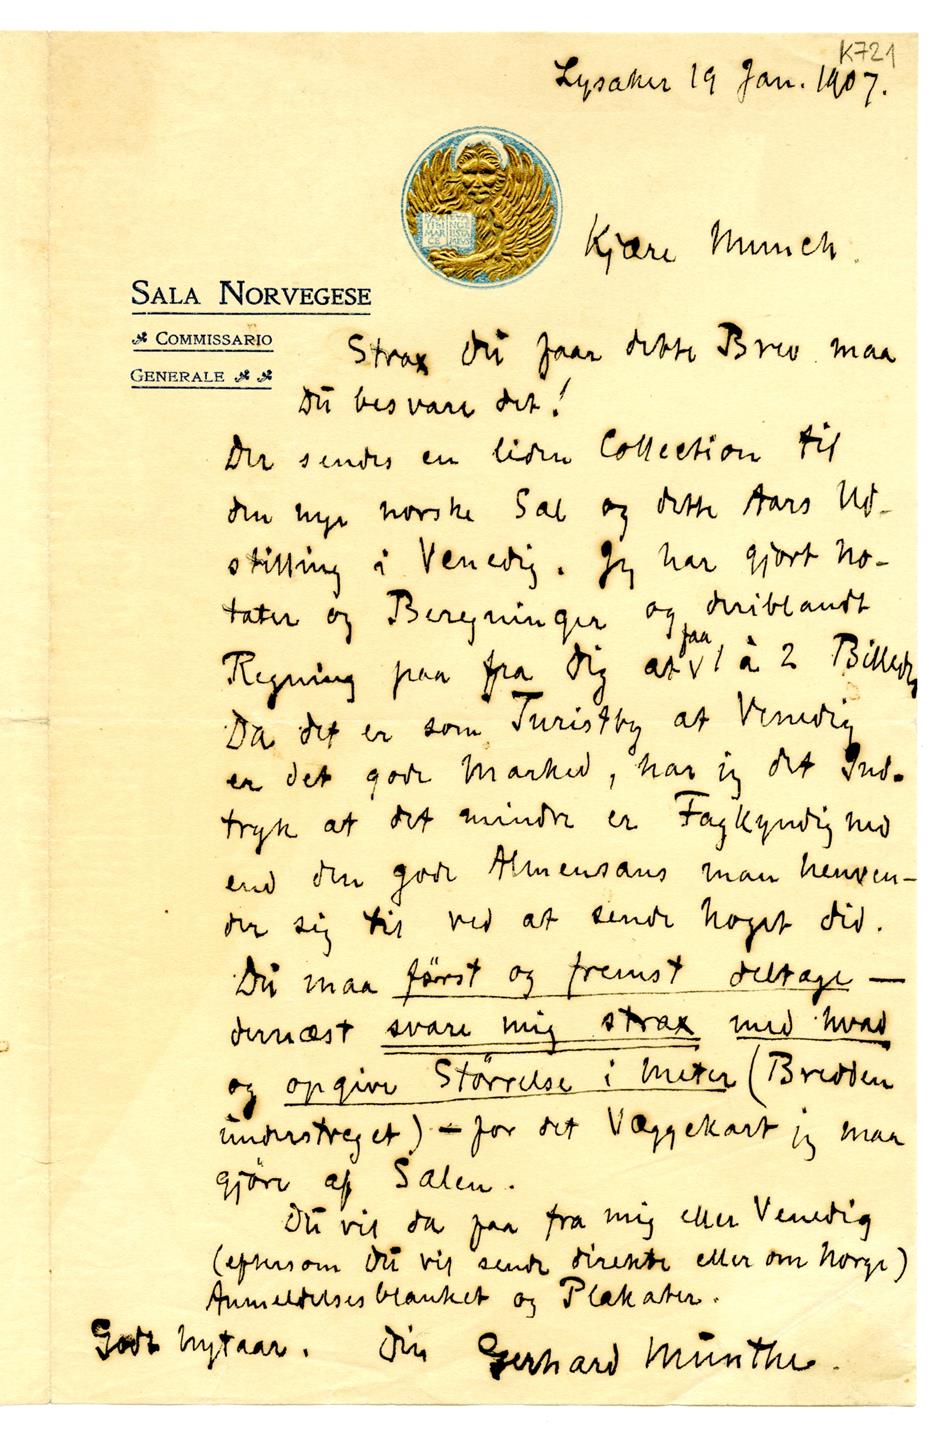 K721
Lysaker 19 Jan. 1907.
PAX
TIBI
MAR
CE
EVA
NGE
LISTA
MEVS
Kjære Munch.
SALA NORVEGESE
COMMISSARIO
GENERALE
Strax Du faar dette Brev maa
Du besvare det!
Der sendes en liden Collection til
den nye norske Sal og dette Aars Ud-
stilling i Venedig. Jeg har gjort No-
tater og Beregninger og deriblandt
Regning paa fra Dig at faa 1 à 2 Billeder
Da det er som Turistby at Venedig
er det gode Marked, har jeg det Ind-
tryk at det mindre er Fagkyndighed
end den gode Almensans man henven-
der sig til ved at sende noget did.
Du maa først og fremst deltage —
dernæst svare mig strax med hvad
og opgive Størrelse i Meter (Bredden
understreget) — for det Væggekart jeg maa
gjöre af Salen.
Du vil da faa fra mig eller Venedig
(eftersom Du vil sende direkte eller om Norge)
Anmeldelsesblanket og Plakater.
Godt Nytaar. Din Gerhard Munthe.